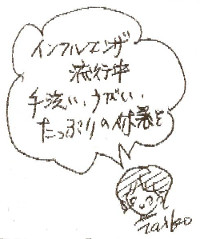 インフルエンザ
流行中
手洗い、うがい、
たっぷりの休養を